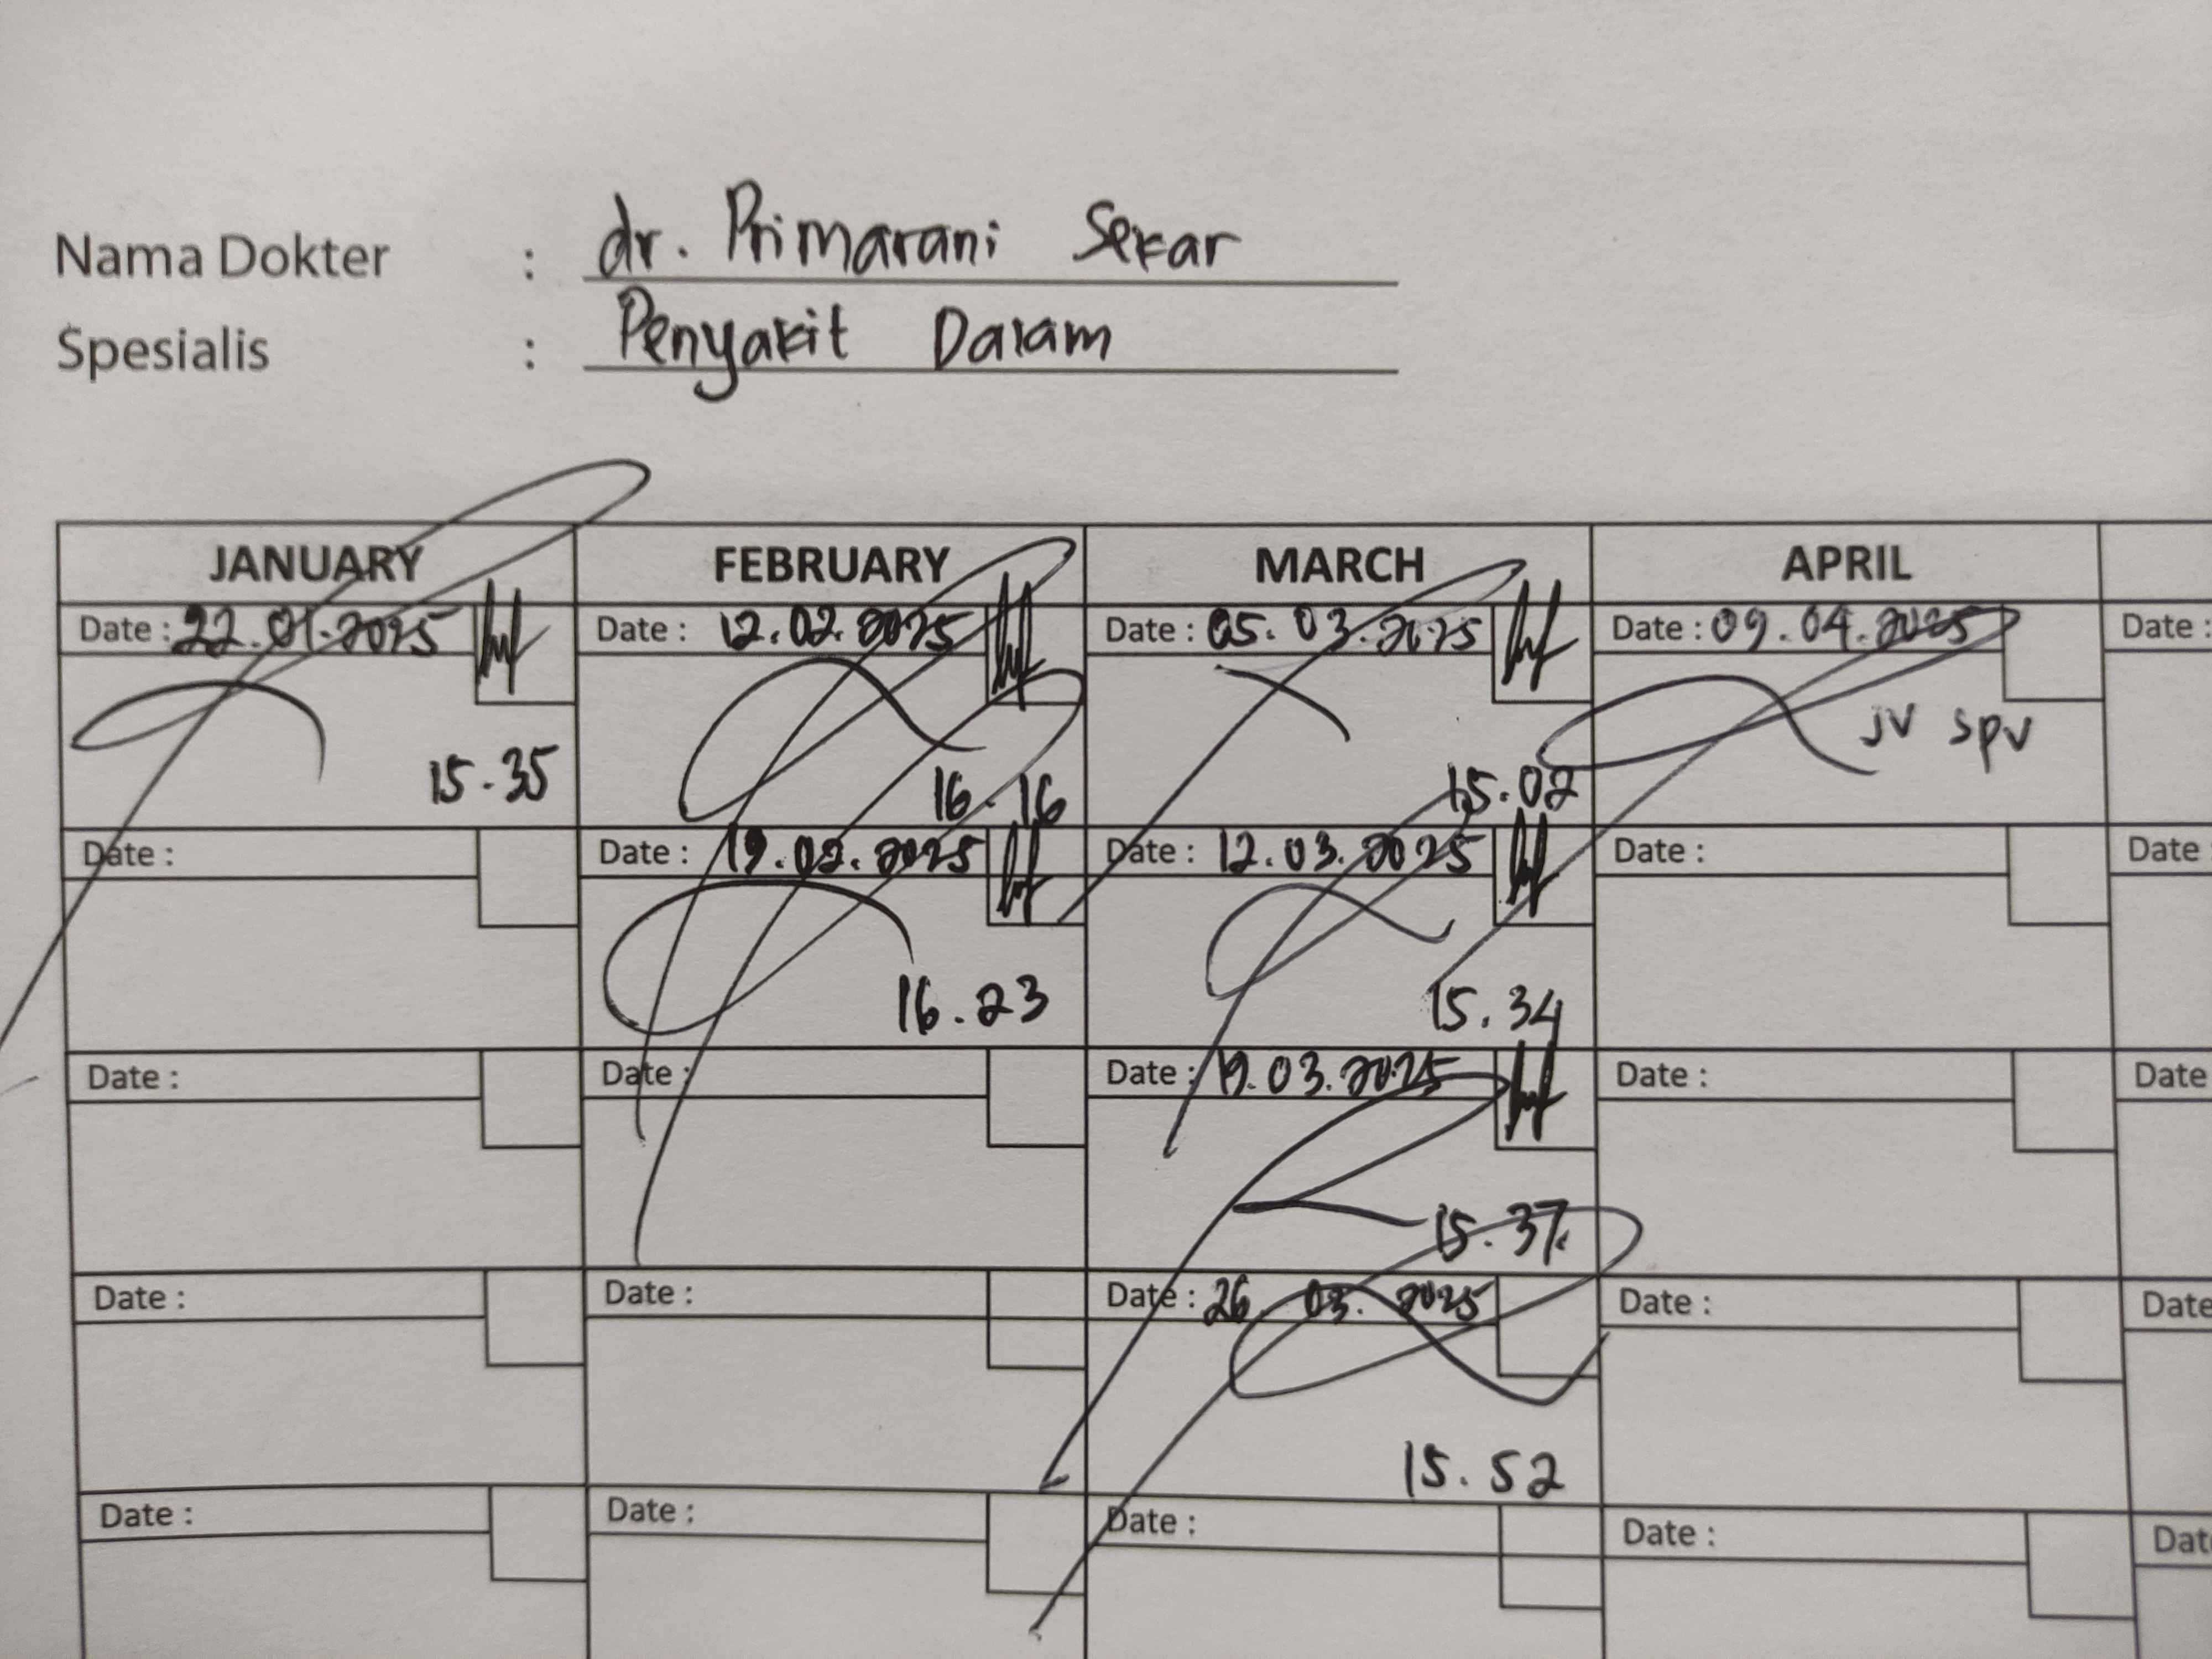 Nama Dokter : dr. Primarani Sekar
Spesialis : Penyakit Dalam
JANUARY FEBRUARY MARCH APRIL
Date : 22.01.2025 Date : 12.02.2025 Date : 05.03.2025 Date : 09.04.2025 Date :
JV SPV
15.35 16.16 15.02
Date : Date : 19.02.2025 Date : 12.03.2025 Date : Date
16.23 15.34
Date : Date : Date : 19.03.2025 Date : Date
15.37
Date : Date : Date : 26.03.2025 Date : Date
15.52
Date : Date : Date : Date : Dat